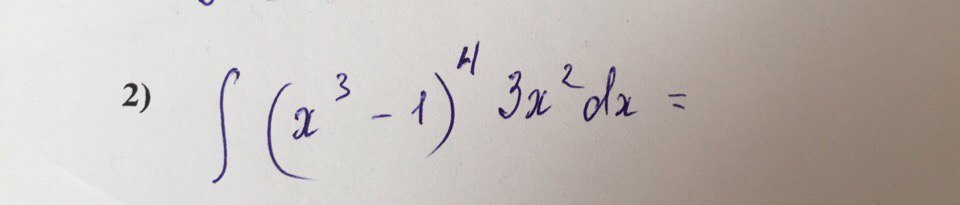 2) ∫ (x³ - 1)⁴ 3x² dx =